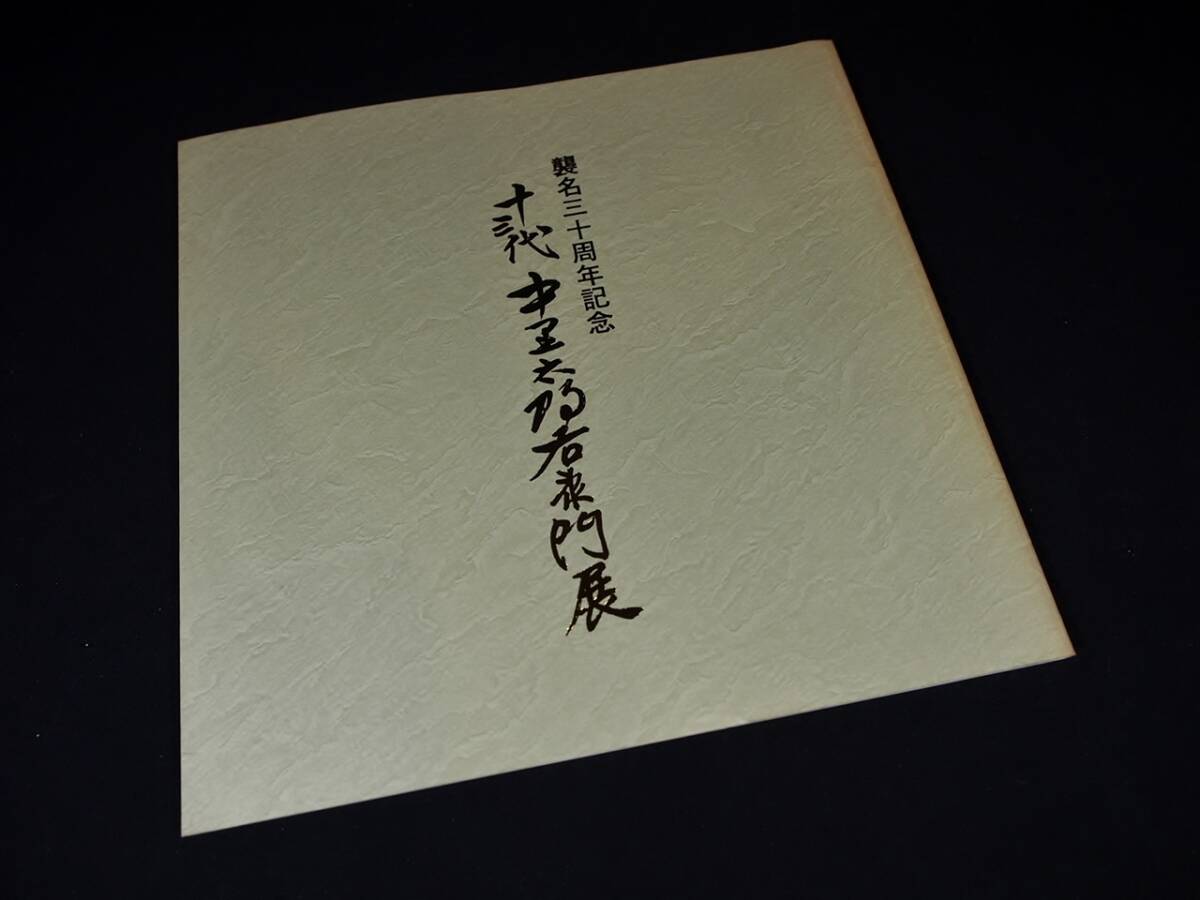 襲名三十周年記念
十三代 中里太郎右衛門展